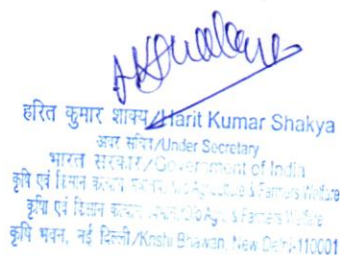 हरित कुमार शाक्य/Harit Kumar Shakya
अवर सचिव/Under Secretary
भारत सरकार/Government of India
कृषि एवं किसान कल्याण मंत्रालय, Agriculture & Farmers Welfare
कृषि एवं किसान कल्याण Agri. & Farmers Welfare
कृषि भवन, नई दिल्ली/Krishi Bhawan, New Delhi-110001